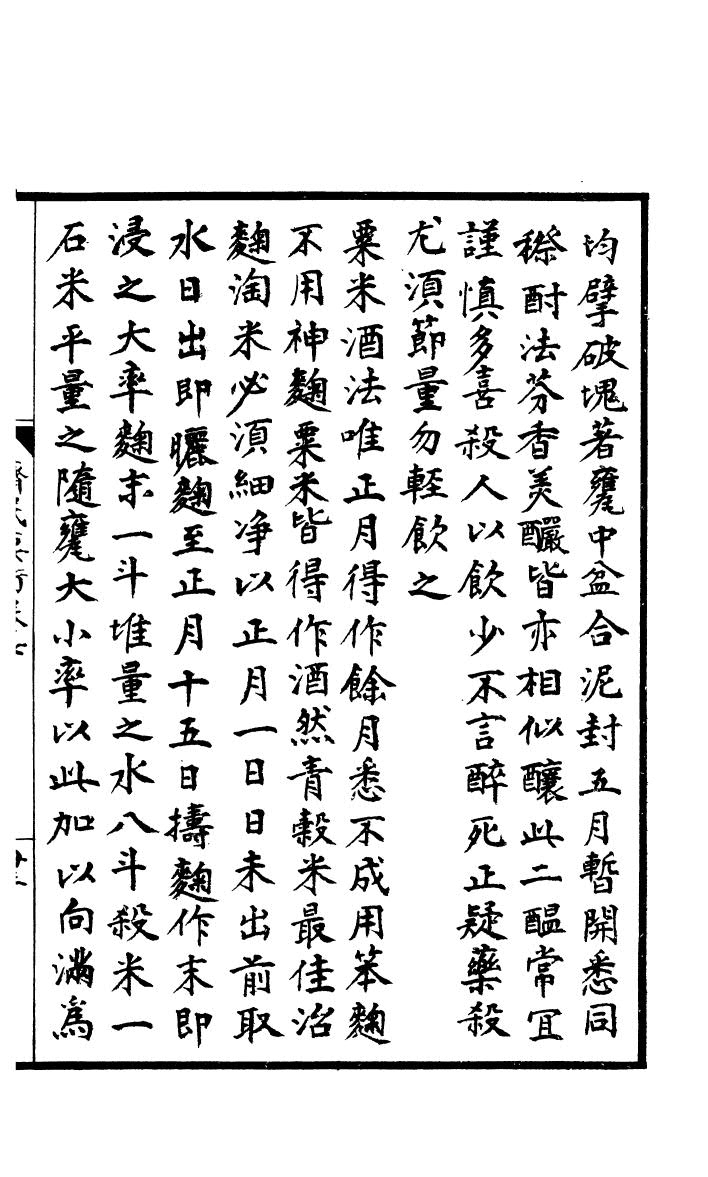 均擘破塊著甕中盆合泥封五月暫開悉同
穄酎法芬香美釅皆亦相似釀此二醖常宜
謹慎多喜殺人以飲少不言醉死正疑藥殺
尤須節量勿輕飲之
粟米酒法唯正月得作餘月悉不成用笨麴
不用神麴粟米皆得作酒然青穀米最佳治
麴淘米必須細净以正月一日日未出前取
水日出即曬麴至正月十五日擣麴作末即
浸之大率麴末一斗堆量之水八斗殺米一
石米平量之隨甕大小率以此加以向滿為